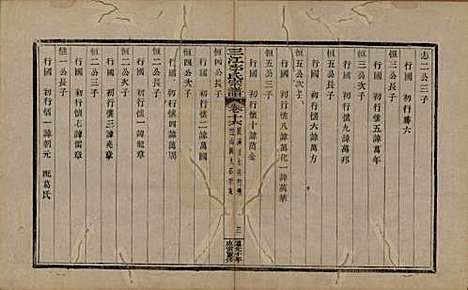 志二公三子
行國 初行勝六
恒三公長子
行國 初行懷五諱萬年
恒三公次子
行國 初行懷九諱萬邦
恒五公長子
行國 初行懷六諱萬方
恒五公次子
行國 初行懷八諱萬化一諱萬華
恒五公三子
行國 初行懷十諱萬金
三江李氏宗譜
卷六
三
恒四公長子
行國 初行懷二諱萬國
恒四公次子
行國 初行懷四諱萬周
恒二公三子
行國 初行懷三諱兆章
恒二公次子
行國 初行懷七諱雷章
恒一公長子
行國 初行懷一諱朝元 配葛氏